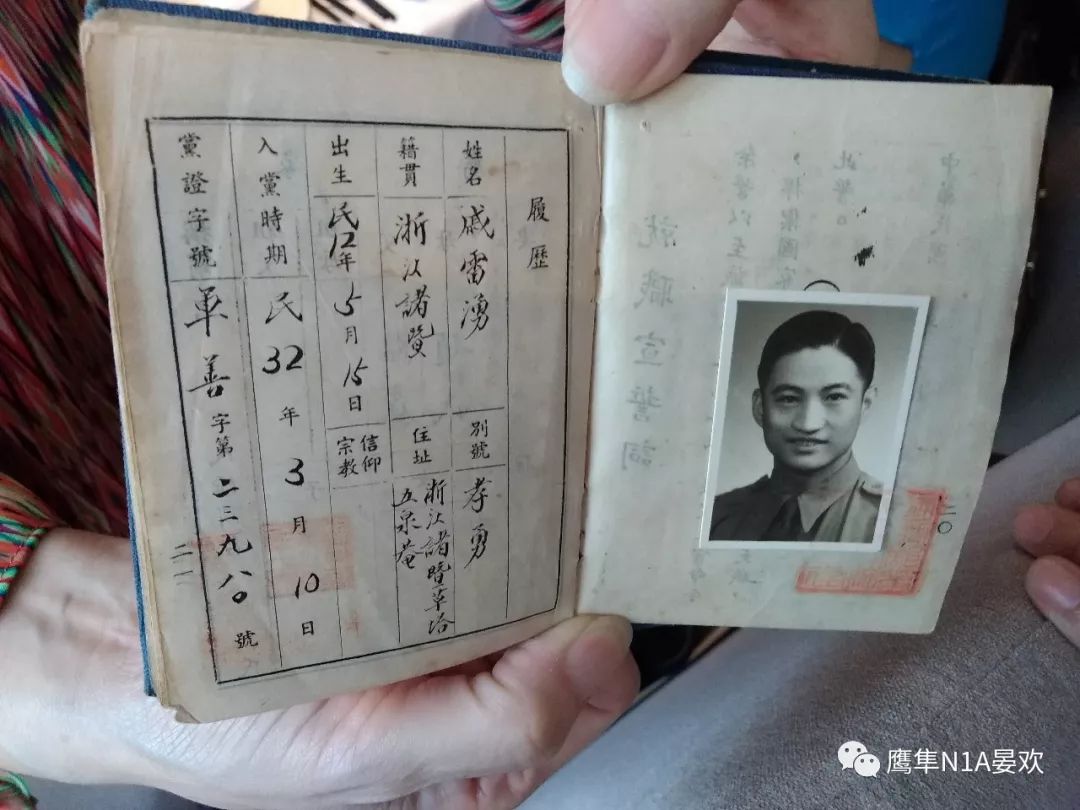 二〇
就職宣誓詞
履歷
姓名 戚雷湧 別號 孝勇
籍貫 浙江諸暨 住址 浙江諸暨草塔
五泉菴
出生 民12年5月15日 信仰
宗教
入黨時期 民32年3月10日
黨證字號 軍善字第二三九八〇號
二一
鹰隼N1A晏欢